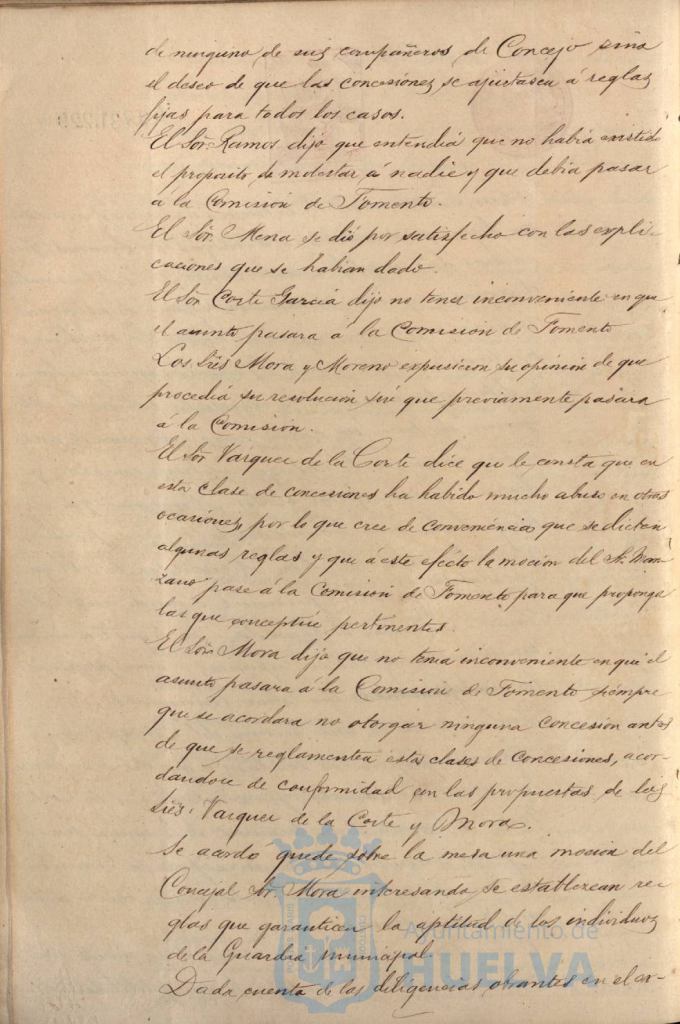 de ninguno de sus compañeros de Concejo sino
el deseo de que las concesiones se ajustasen á reglas
fijas para todos los casos.
El Sor. Ramos dijo que entendia que no habia existido
el proposito de molestar á nadie y que debia pasar
á la Comisión de Fomento.
El Sor. Mena se dió por satisfecho con las expli-
caciones que se habian dado.
El Sor. Corte Garcia dijo no tener inconveniente en que
el asunto pasara á la Comision de Fomento
Los Srēs Mora y Moreno expusieron su opinion de que
procedia su resolución sin que previamente pasara
á la Comision.
El Sor. Vazquez de la Corte dice que le consta que en
esta clase de concesiones ha habido mucho abuso en otras
ocasiones, por lo que cree de conveniencia que se dicten
algunas reglas y que á este efecto la moción del Sr. Man-
zano pase á la Comisión de Fomento para que proponga
las que conceptúe pertinentes.
El Sor. Mora dijo que no tenia inconveniente en que el
asunto pasara á la Comisión de Fomento siempre
que se acordara no otorgar ninguna concesion antes
de que se reglamenten estas clases de concesiones, acor-
dandose de conformidad con las propuestas de los
Srēs. Vazquez de la Corte y Mora.
Se acordó quede sobre la mesa una mocion del
Concejal Sr. Mora interesando se establezcan re-
glas que garanticen la aptitud de los individuos
de la Guardia municipal.
Dada cuenta de las diligencias obrantes en el ex-
Ayuntamiento de
HUELVA